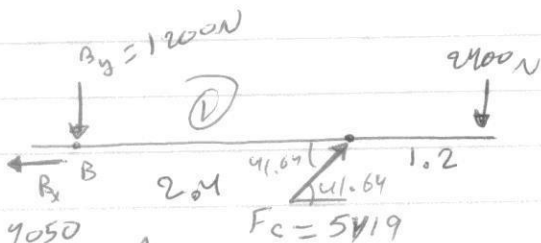 By = 1200N
①
2400N
Bx
B
2.4
41.64
41.64
1.2
4050
Fc = 5419